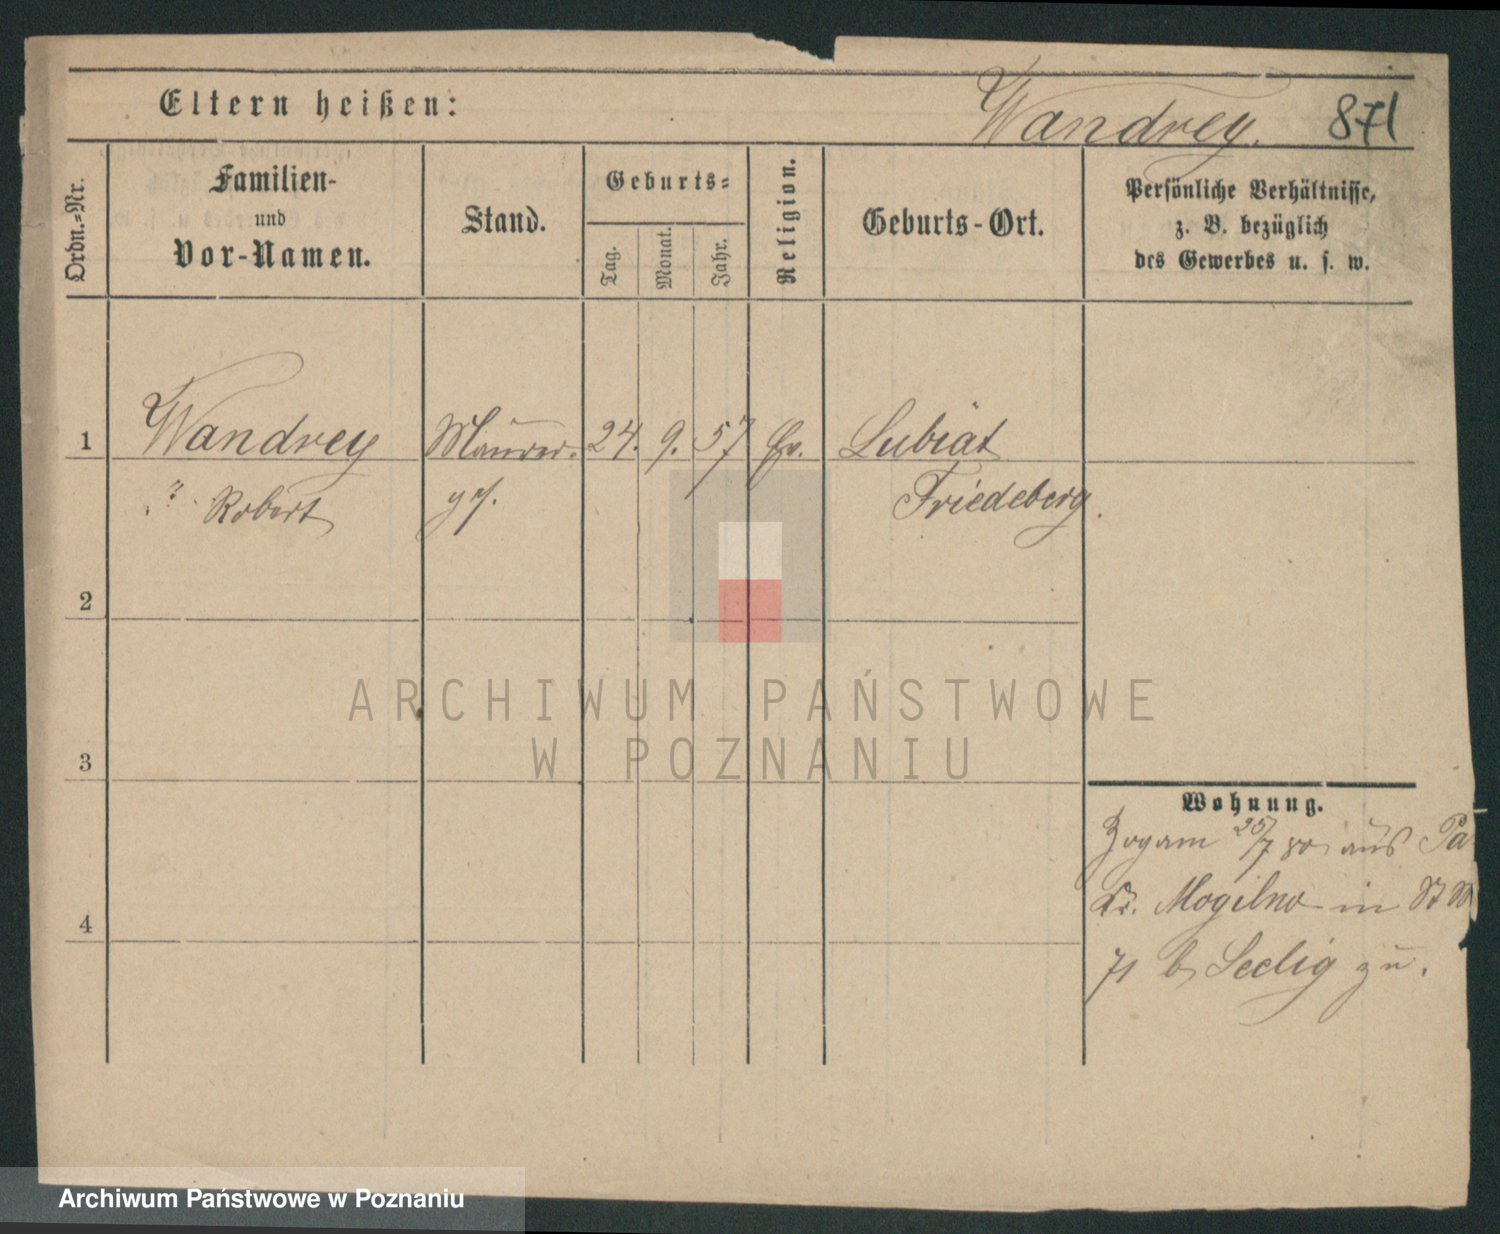 Eltern heißen:
Wandrey. 871
Ordn.=Nr.
Familien-
und
Vor-Namen.
Stand.
Geburts=
Tag.
Monat.
Jahr.
Religion.
Geburts-Ort.
Persönliche Verhältnisse,
z. B. bezüglich
des Gewerbes u. s. w.
1 Wandrey Maurer- 24. 9. 57 Ev. Lubiat
Robert ges. Friedeberg.
2
3
4
ARCHIWUM PAŃSTWOWE
W POZNANIU
Wohnung.
Zog am 25/7 80 aus
Kr. Mogilno in St M
71 b Seelig zu.
Archiwum Państwowe w Poznaniu